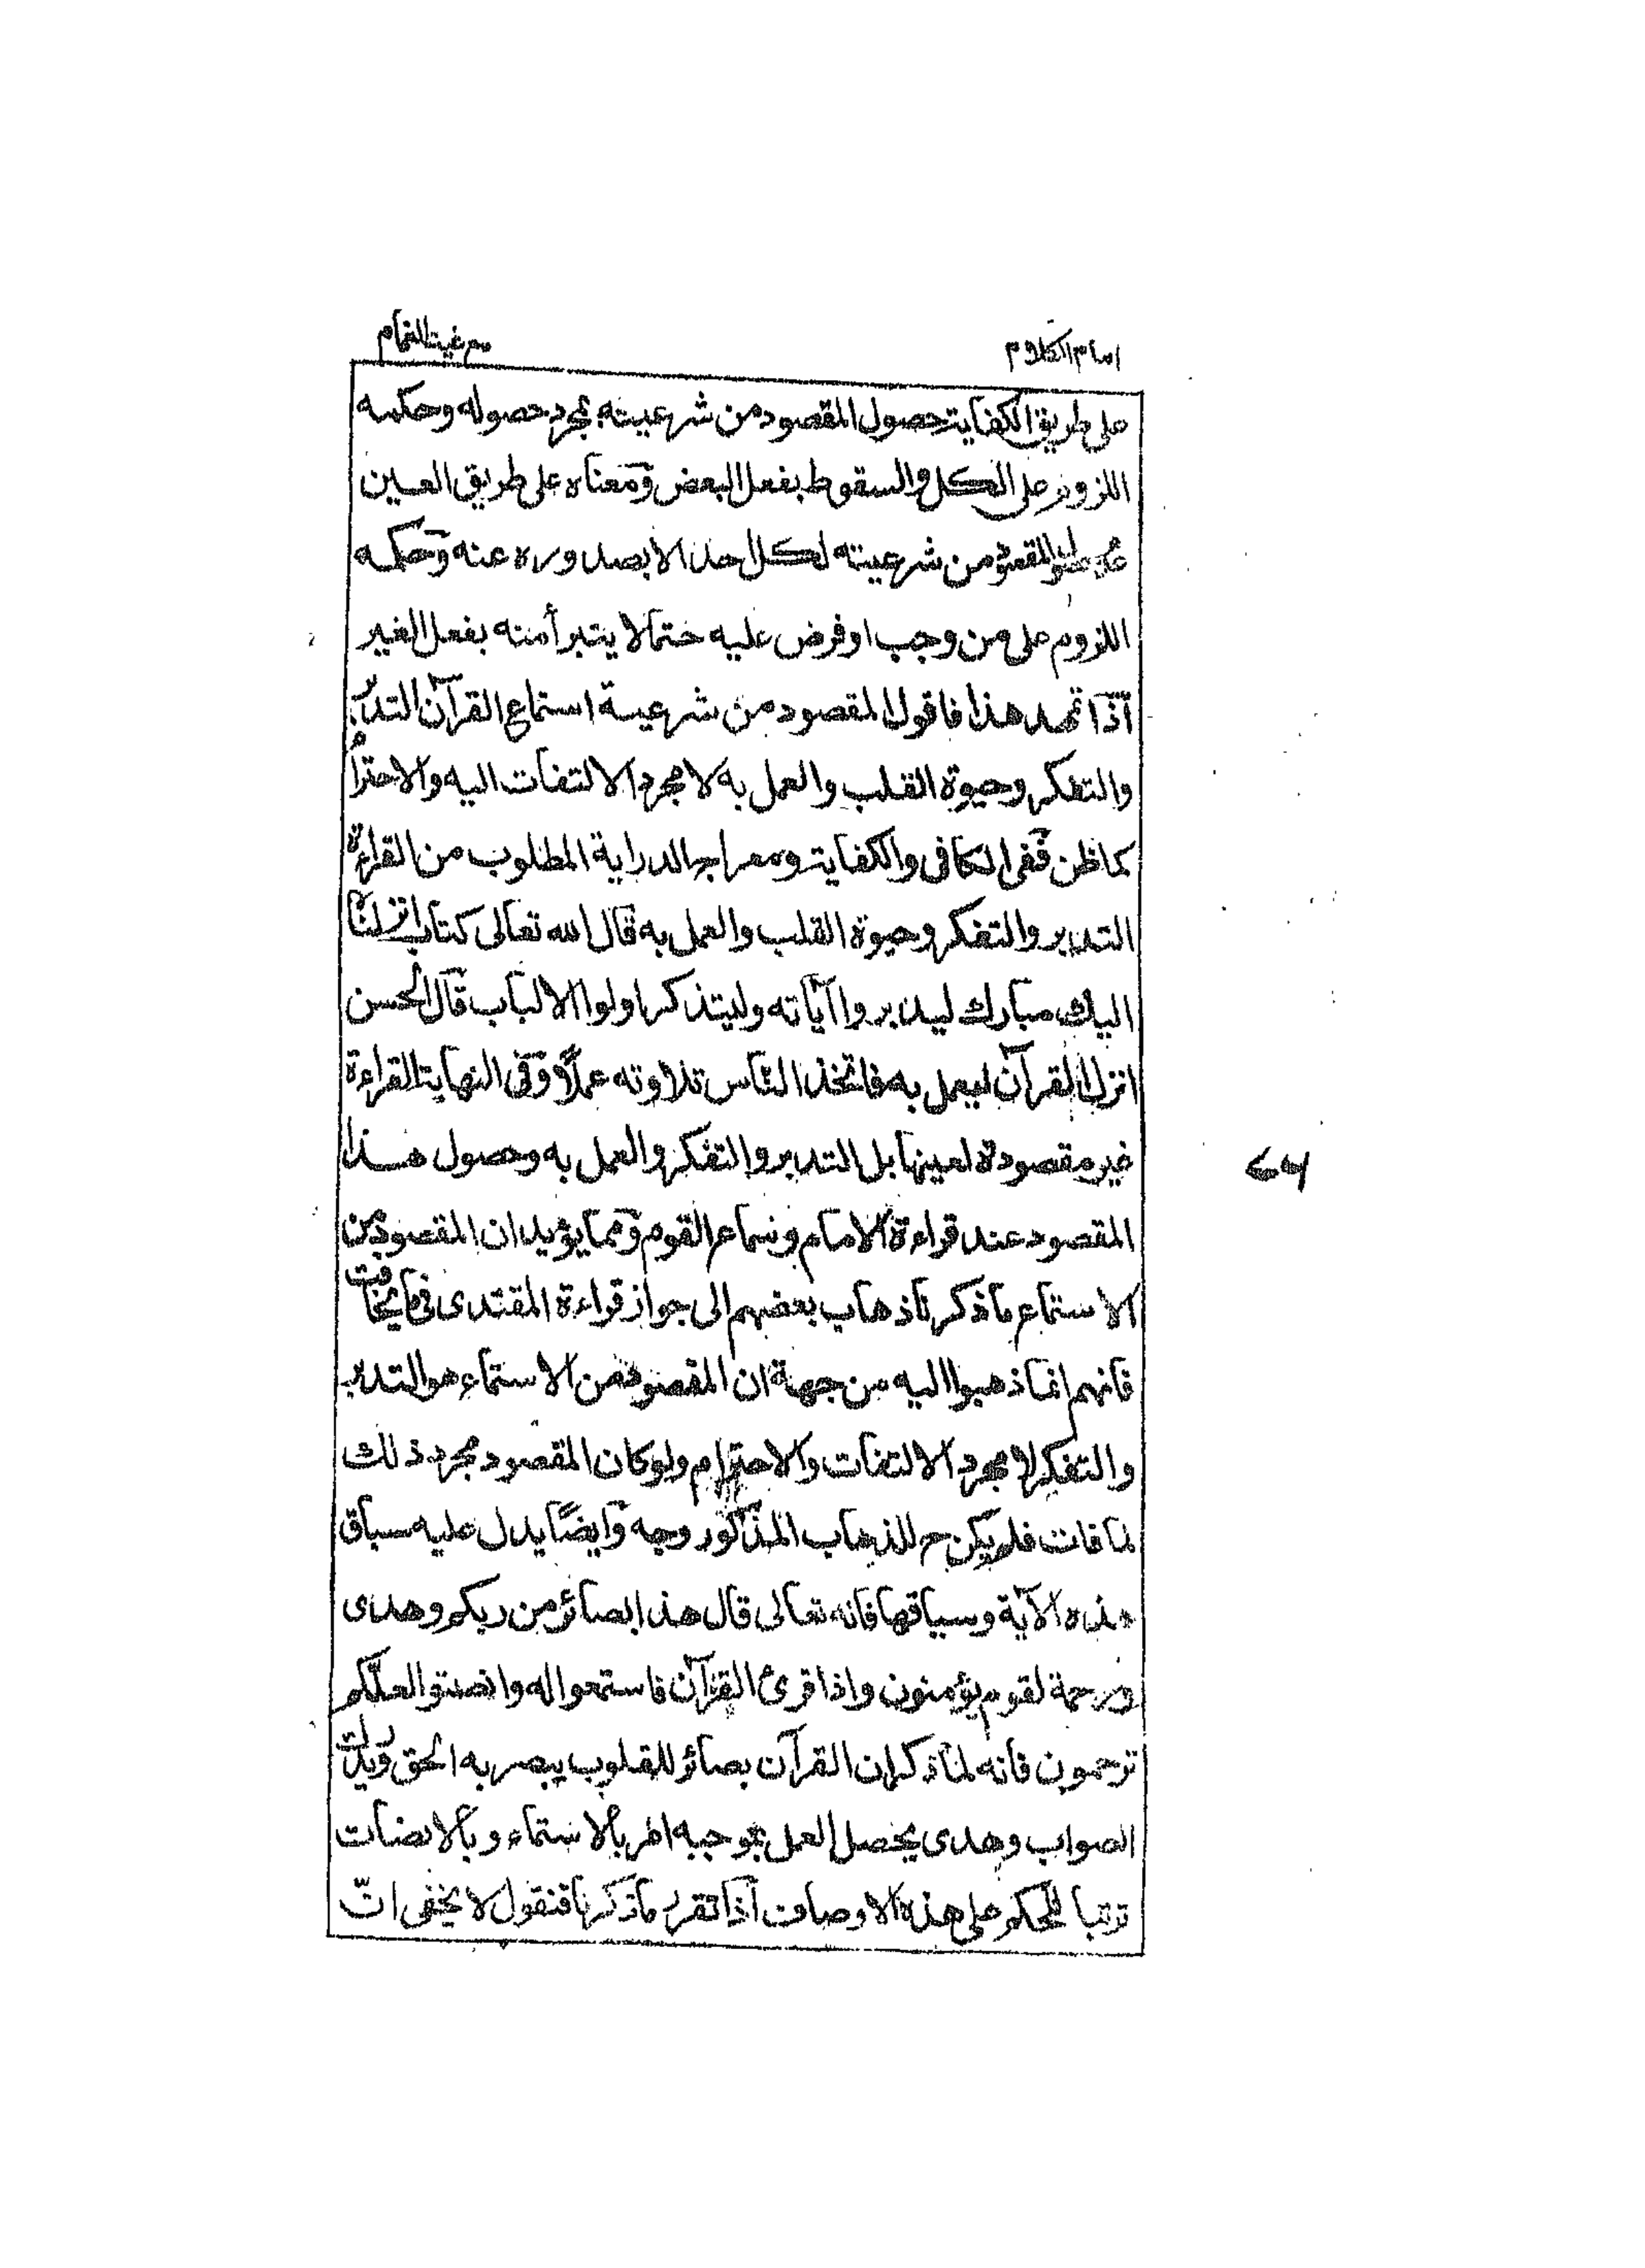 امام الكلام
مع غيث الغمام
على طريق الكفاية حصول المقصود من شرعيته بمجرد حصوله وحكمه
اللزوم على الكل والسقوط بفعل البعض ومعناه على طريق العين
المقصود من شرعيته لكل احد الا بصدوره عنه وحكمه
اللزوم على من وجب او فرض عليه حتما لا يتبرأ منه بفعل الغير
اذا تمهد هذا فاقول المقصود من شرعية استماع القرآن التدبر
والتفكر وحيوة القلب والعمل به لا مجرد الالتفات اليه والاحترام
كما ظن ففى الكافى والكفاية ومعراج الدراية المطلوب من القراءة
التدبر والتفكر وحيوة القلب والعمل به قال الله تعالى كتاب انزلناه
اليك مبارك ليدبروا آياته وليتذكر اولوا الالباب قال الحسن
انزل القرآن ليعمل به فاتخذ الناس تلاوته عملًا وفى النهاية القراءة
غير مقصودة لعينها بل التدبر والتفكر والعمل به وحصول هذا
المقصود عند قراءة الامام وسماع القوم ومما يؤيد ان المقصود من
الاستماع ما ذكرنا ذهاب بعضهم الى جواز قراءة المقتدى فى ما يخافت
فانهم انما ذهبوا اليه من جهة ان المقصود من الاستماع هو التدبر
والتفكر لا مجرد الالتفات والاحترام ولو كان المقصود مجرد ذلك
لما فات فلم يكن ح للذهاب المذكور وجه وايضًا يدل عليه سباق
هذه الآية وسياقها فانه تعالى قال هذا بصائر من ربكم وهدى
ورحمة لقوم يؤمنون واذا قرئ القرآن فاستمعوا له وانصتوا لعلّكم
ترحمون فانه لما ذكر ان القرآن بصائر للقلوب يبصر به الحق ويدرك
الصواب وهدى يحصل العمل بموجبه امر بالاستماع وبالانصات
ترتبا للحكم على هذه الاوصاف اذا تقرر ما ذكرنا فنقول لا يخفى انّ